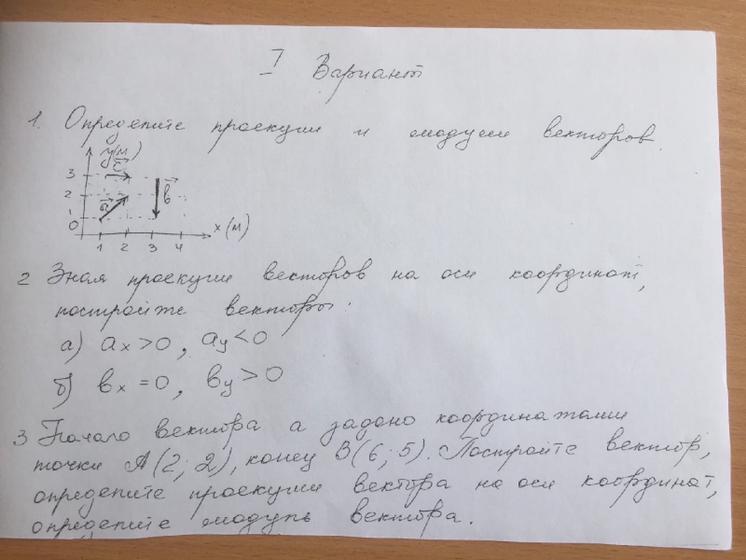 I Вариант
1. Определите проекции и модули векторов.
y(м)
c
3
2
a
b
1
0
1 2 3 4
x (м)
2 Зная проекции векторов на оси координат,
постройте векторы.
а) ax>0, ay<0
б) bx =0, by>0
3 Начало вектора а задано координатами
точки A(2; 2), конец B(6; 5). Постройте вектор,
определите проекции вектора на оси координат,
определите модуль вектора.